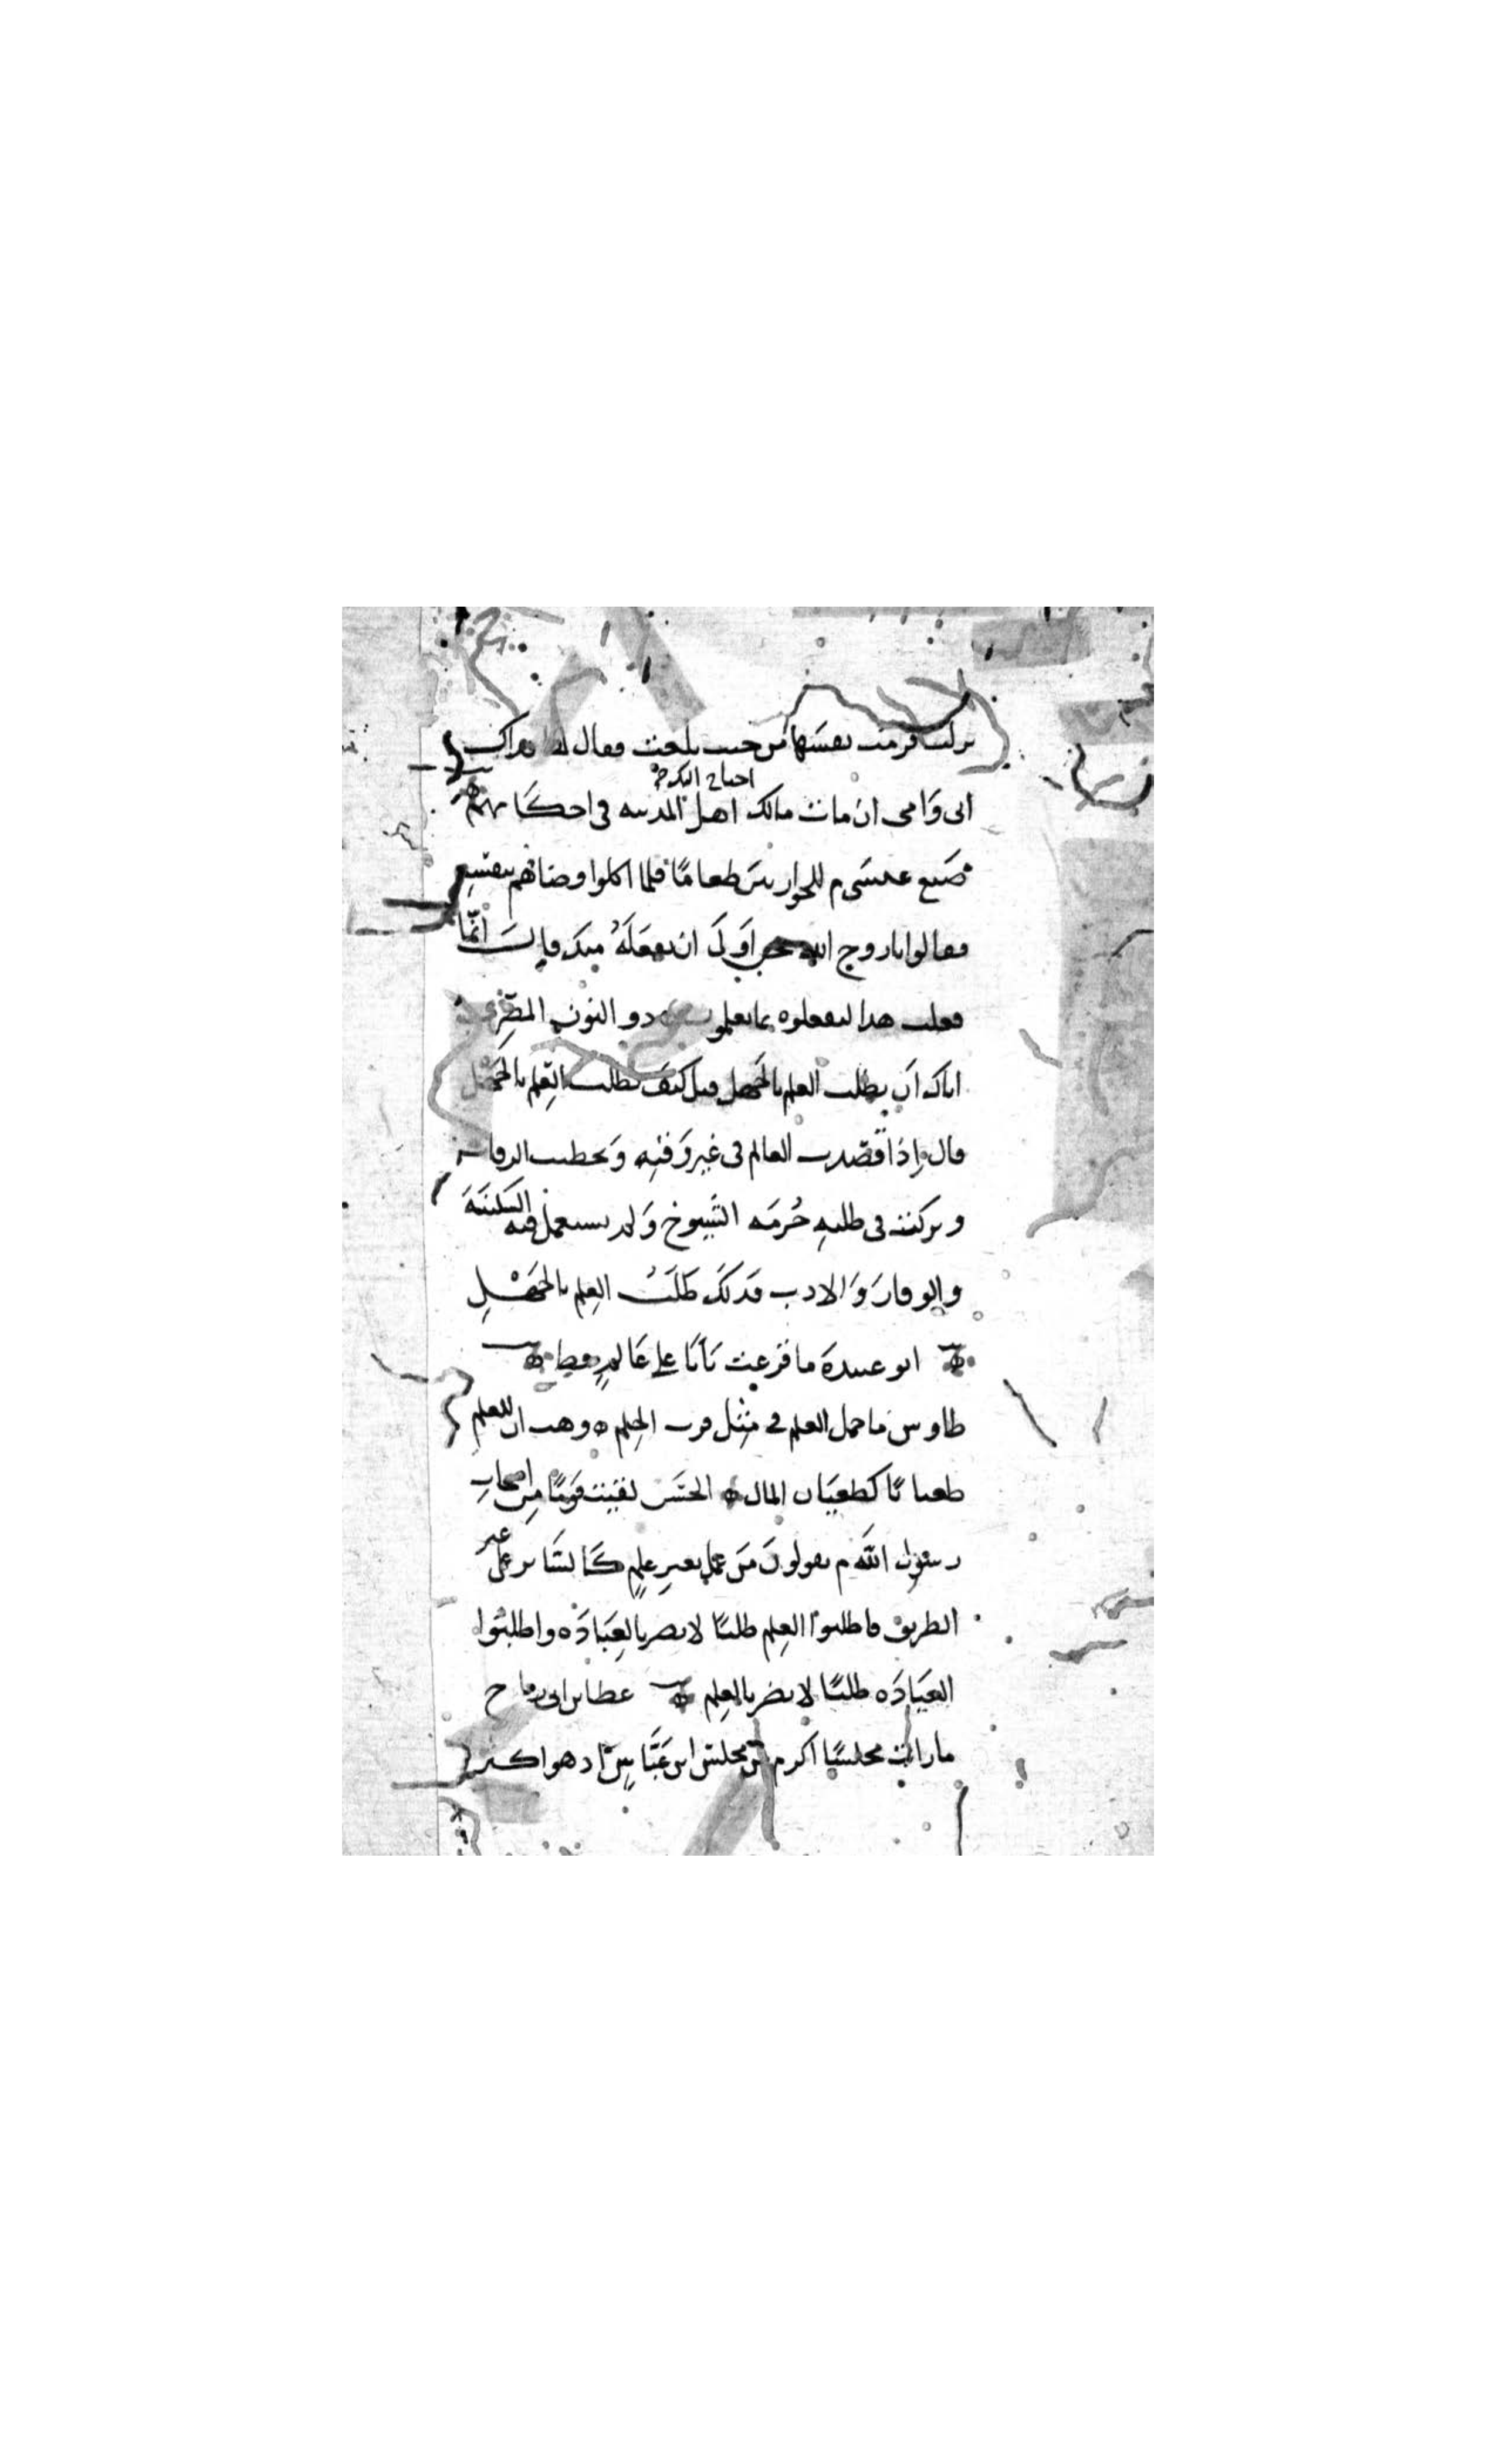 نزلت فرمت بنفسها من حيث بلغت فقال لها فداك
ابى وامى ان مات مالك احتاج اليك اهل المدينه فى احكامهم
صنع عيسى م للحواريين طعاما فلما اكلوا وضاهم بنفسه
فقالوا ياروح الله نحن اولى ان نفعله منك قال انما
فعلت هذا لتفعلوه بمن تعلمون ذو النون المصرى
اياك ان تطلب العلم بالجهل قيل كيف نطلب العلم بالجهل
قال اذا قصدت العالم فى غير وقته وتخطيت الرقاب
وتركت فى طلبه حرمه الشيوخ ولم تستعمل فيه السكينة
والوقار والادب فذلك طلب العلم بالجهل
ابو عبيدة ما قرعت بابا على عالم قط
طاوس ما حمل العلم فى مثل جراب الحلم وهب ان للعلم
طغيانا كطغيان المال الحسن لقيت قوما من اصحاب
رسول الله م يقولون من عمل بغير علم كالسائر على غير
الطريق فاطلبوا العلم طلبا لا يضر بالعبادة واطلبوا
العبادة طلبا لا يضر بالعلم عطا بن ابى رباح
ما رايت مجلسا اكرم من مجلس ابن عباس اد هو اكثر